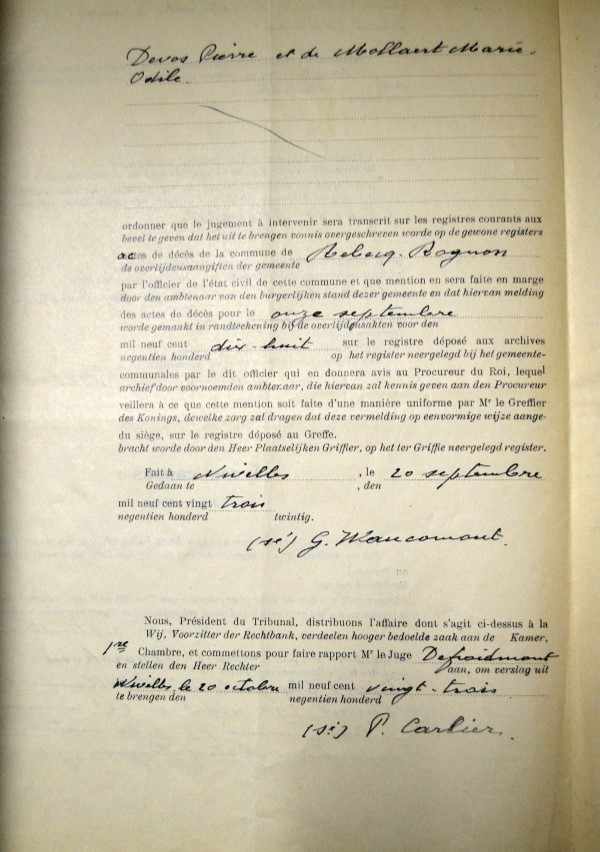 Devos Pierre et de Mollaert Marie-
Odile.
ordonner que le jugement à intervenir sera transcrit sur les registres courants aux
bevel te geven dat het uit te brengen vonnis overgeschreven worde op de gewone registers
actes de décès de la commune de Rebecq-Rognon
de overlijdensaangiften der gemeente
par l'officier de l'état civil de cette commune et que mention en sera faite en marge
door den ambtenaar van den burgerlijken stand dezer gemeente en dat hiervan melding
des actes de décès pour le onze septembre
worde gemaakt in randteekening bij de overlijdensakten voor den
mil neuf cent dix-huit sur le registre déposé aux archives
negentien honderd op het register neergelegd bij het gemeente-
communales par le dit officier qui en donnera avis au Procureur du Roi, lequel
archief door voornoemden ambtenaar, die hiervan zal kennis geven aan den Procureur
veillera à ce que cette mention soit faite d'une manière uniforme par Mr le Greffier
des Konings, dewelke zorg zal dragen dat deze vermelding op eenvormige wijze aange-
du siège, sur le registre déposé au Greffe.
bracht worde door den Heer Plaatselijken Griffier, op het ter Griffie neergelegd register.
Fait à Nivelles, le 20 septembre
Gedaan te , den
mil neuf cent vingt trois
negentien honderd twintig.
(sé) G. Wancomont.
Nous, Président du Tribunal, distribuons l'affaire dont s'agit ci-dessus à la
Wij, Voorzitter der Rechtbank, verdeelen hooger bedoelde zaak aan de Kamer,
1re Chambre, et commettons pour faire rapport Mr le Juge Defroidmont
en stellen den Heer Rechter aan, om verslag uit
Nivelles le 20 octobre mil neuf cent vingt-trois
te brengen den negentien honderd
(sé) P. Carlier.